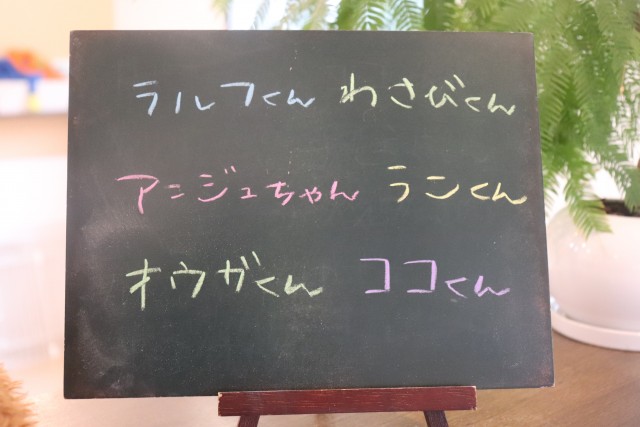 ラルフくん わさびくん
アンジュちゃん ランくん
オウガくん ココくん